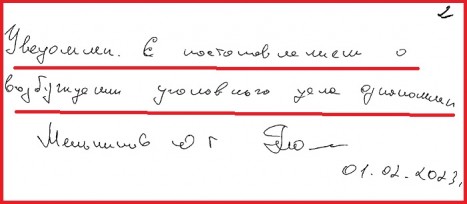 2
Уведомлен. С постановлением о
возбуждении уголовного дела ознакомлен
Меньшиков Ю Г
01.02.2023,